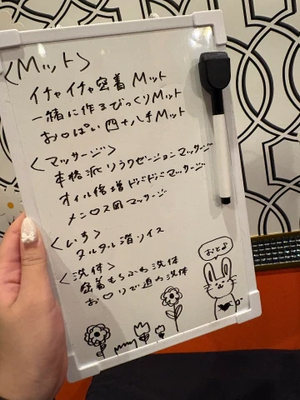 <Mット>
イチャイチャ密着Mット
一緒に作るびっくりMット
お○ぱい四十八手Mット
<マッサージ>
本格派リラクゼーションマッサージ
オイル倍増ドバドバマッサージ
メンロス図マッサージ
<いす>
タルタル滑りイス
<洗体>
密着もちふわ洗体
お○りで迫る洗体
おとよ